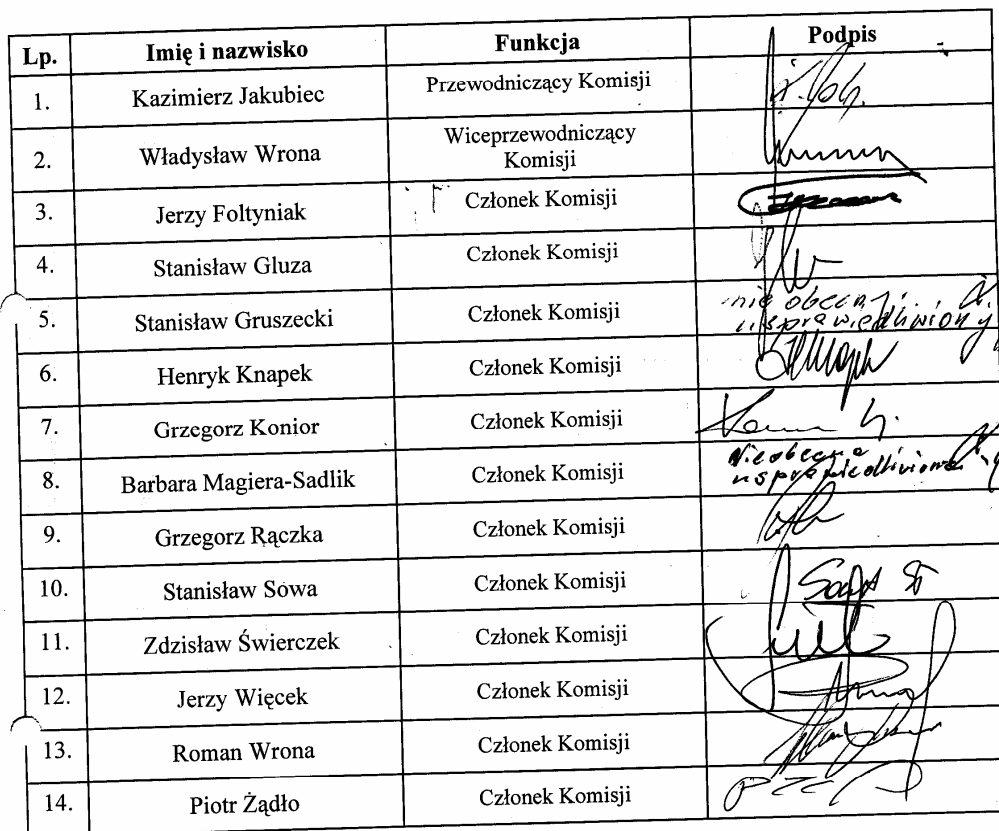 Lp. Imię i nazwisko Funkcja Podpis
1. Kazimierz Jakubiec Przewodniczący Komisji
2. Władysław Wrona Wiceprzewodniczący
Komisji
3. Jerzy Foltyniak Członek Komisji
4. Stanisław Gluza Członek Komisji
5. Stanisław Gruszecki Członek Komisji nie obecny
usprawiedliwiony
6. Henryk Knapek Członek Komisji
7. Grzegorz Konior Członek Komisji
8. Barbara Magiera-Sadlik Członek Komisji Nieobecna
usprawiedliwiona
9. Grzegorz Rączka Członek Komisji
10. Stanisław Sowa Członek Komisji
11. Zdzisław Świerczek Członek Komisji
12. Jerzy Więcek Członek Komisji
13. Roman Wrona Członek Komisji
14. Piotr Żądło Członek Komisji